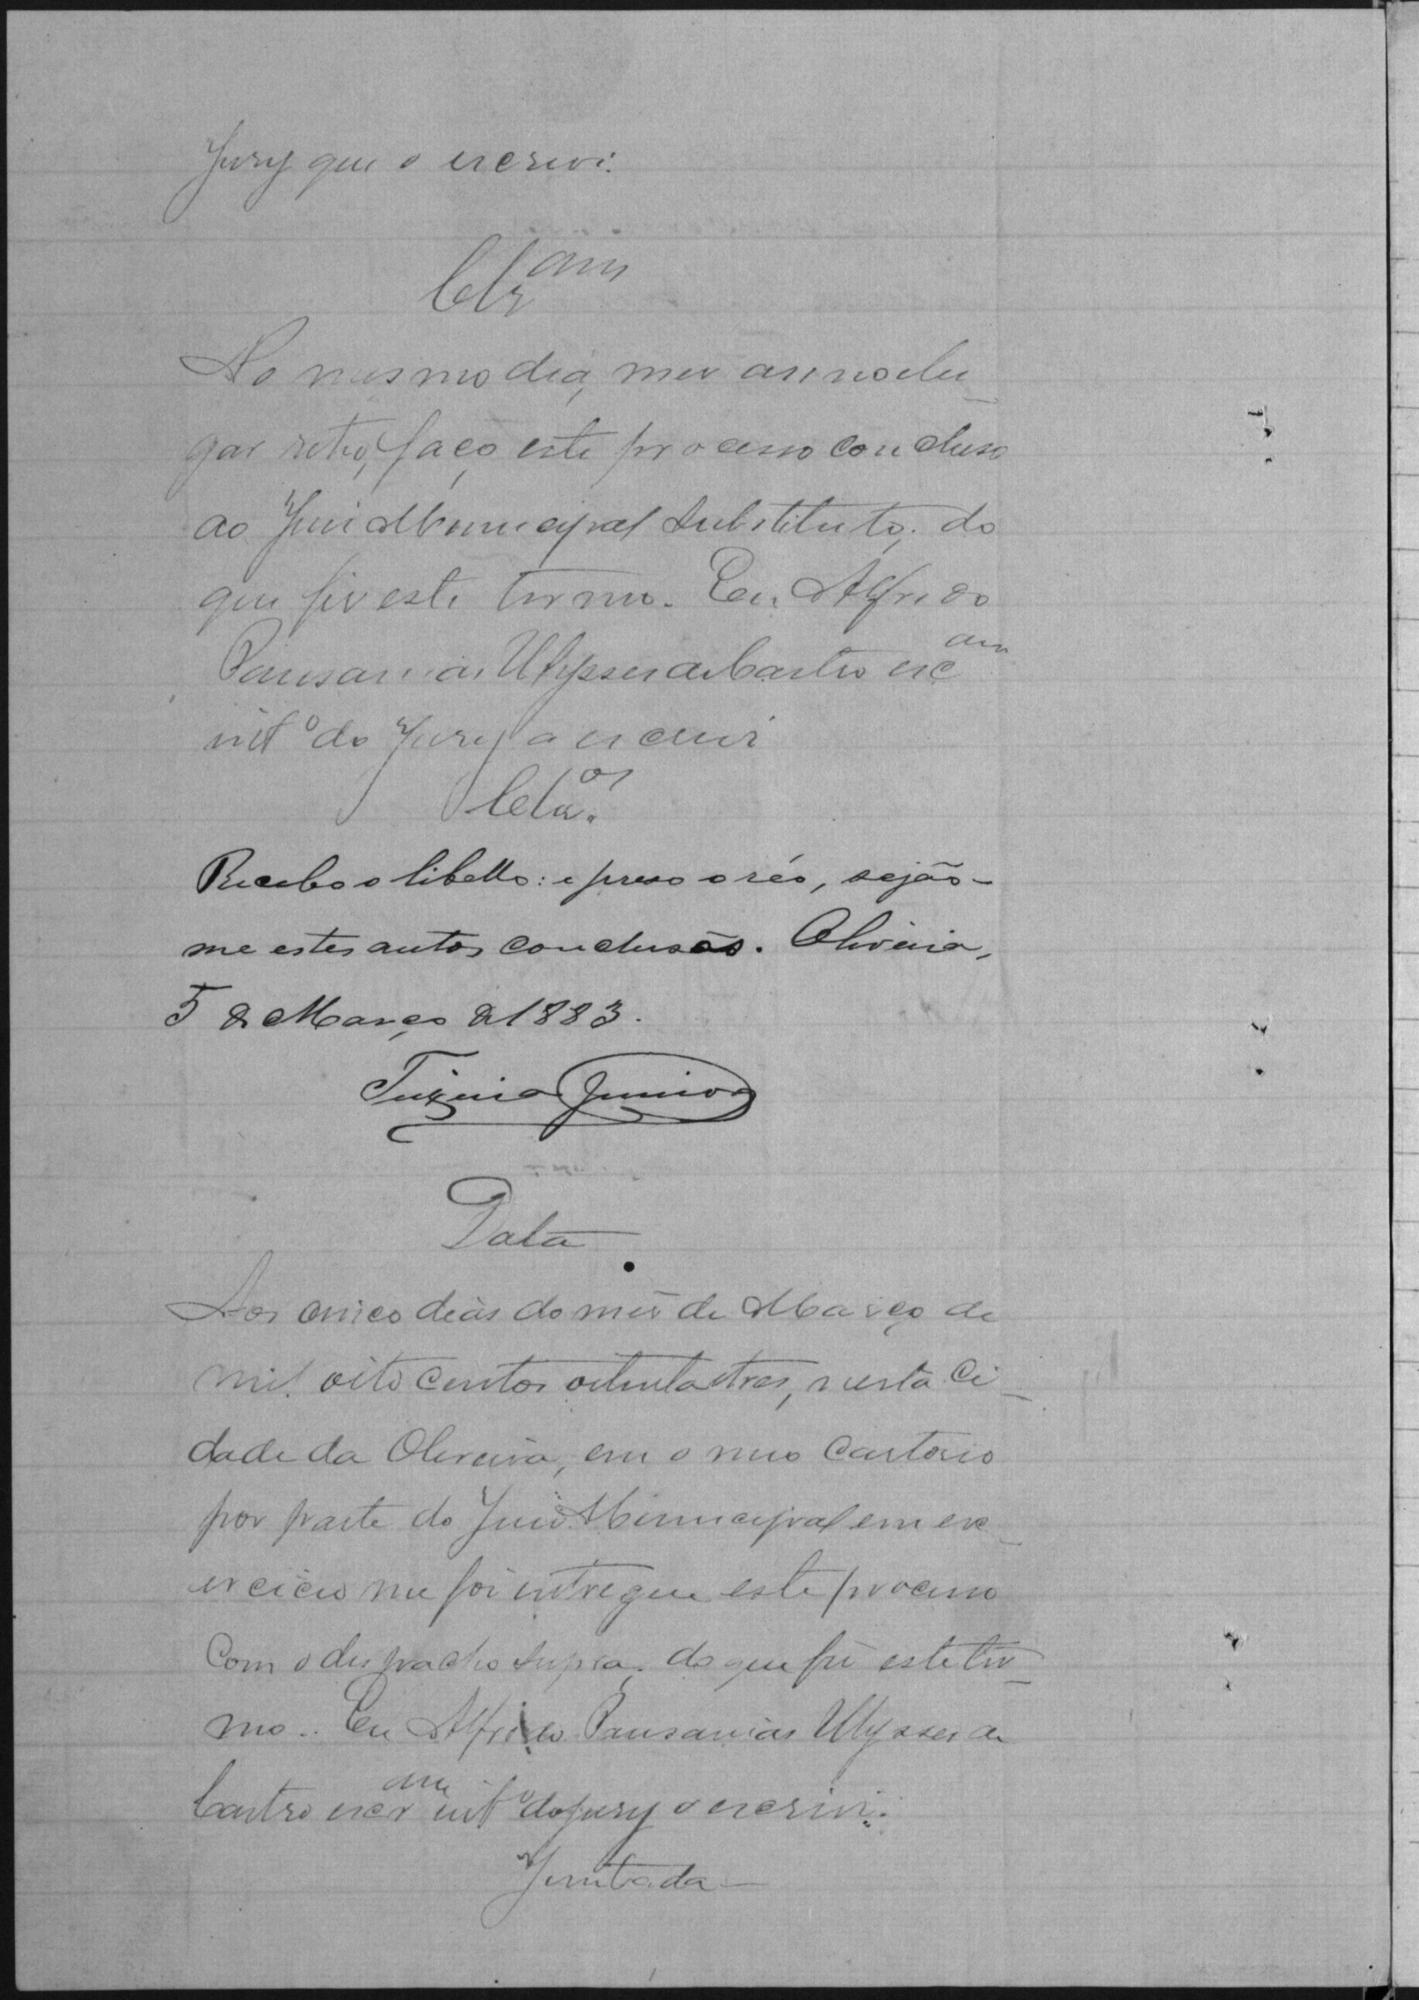 Jury que o escrevi.
Clz.am
No mesmo dia, mez anno e lu-
gar retro, faço este processo concluso
ao Juiz Municipal Substituto, do
que fiz este termo. Eu Alfredo
Pausanias Ulysses de Castro esc.am
int.º do Jury o escrevi
Cclu.os
Recebo o libello: e preso o réo, sejão-
me estes autos conclusos. Oliveira,
5 de Março de 1883.
Teixeira Junior
Data
Aos cinco dias do mez de Março de
mil oito centos oitenta e tres, nesta Ci-
dade da Oliveira, em o meo Cartorio
por parte do Juiz Municipal em ex-
ercicio me foi entregue este processo
com o despacho supra, do que fiz este ter-
mo. Eu Alfredo Pausanias Ulysses de
Castro escr.am int.º do Jury o escrevi.
Juntada